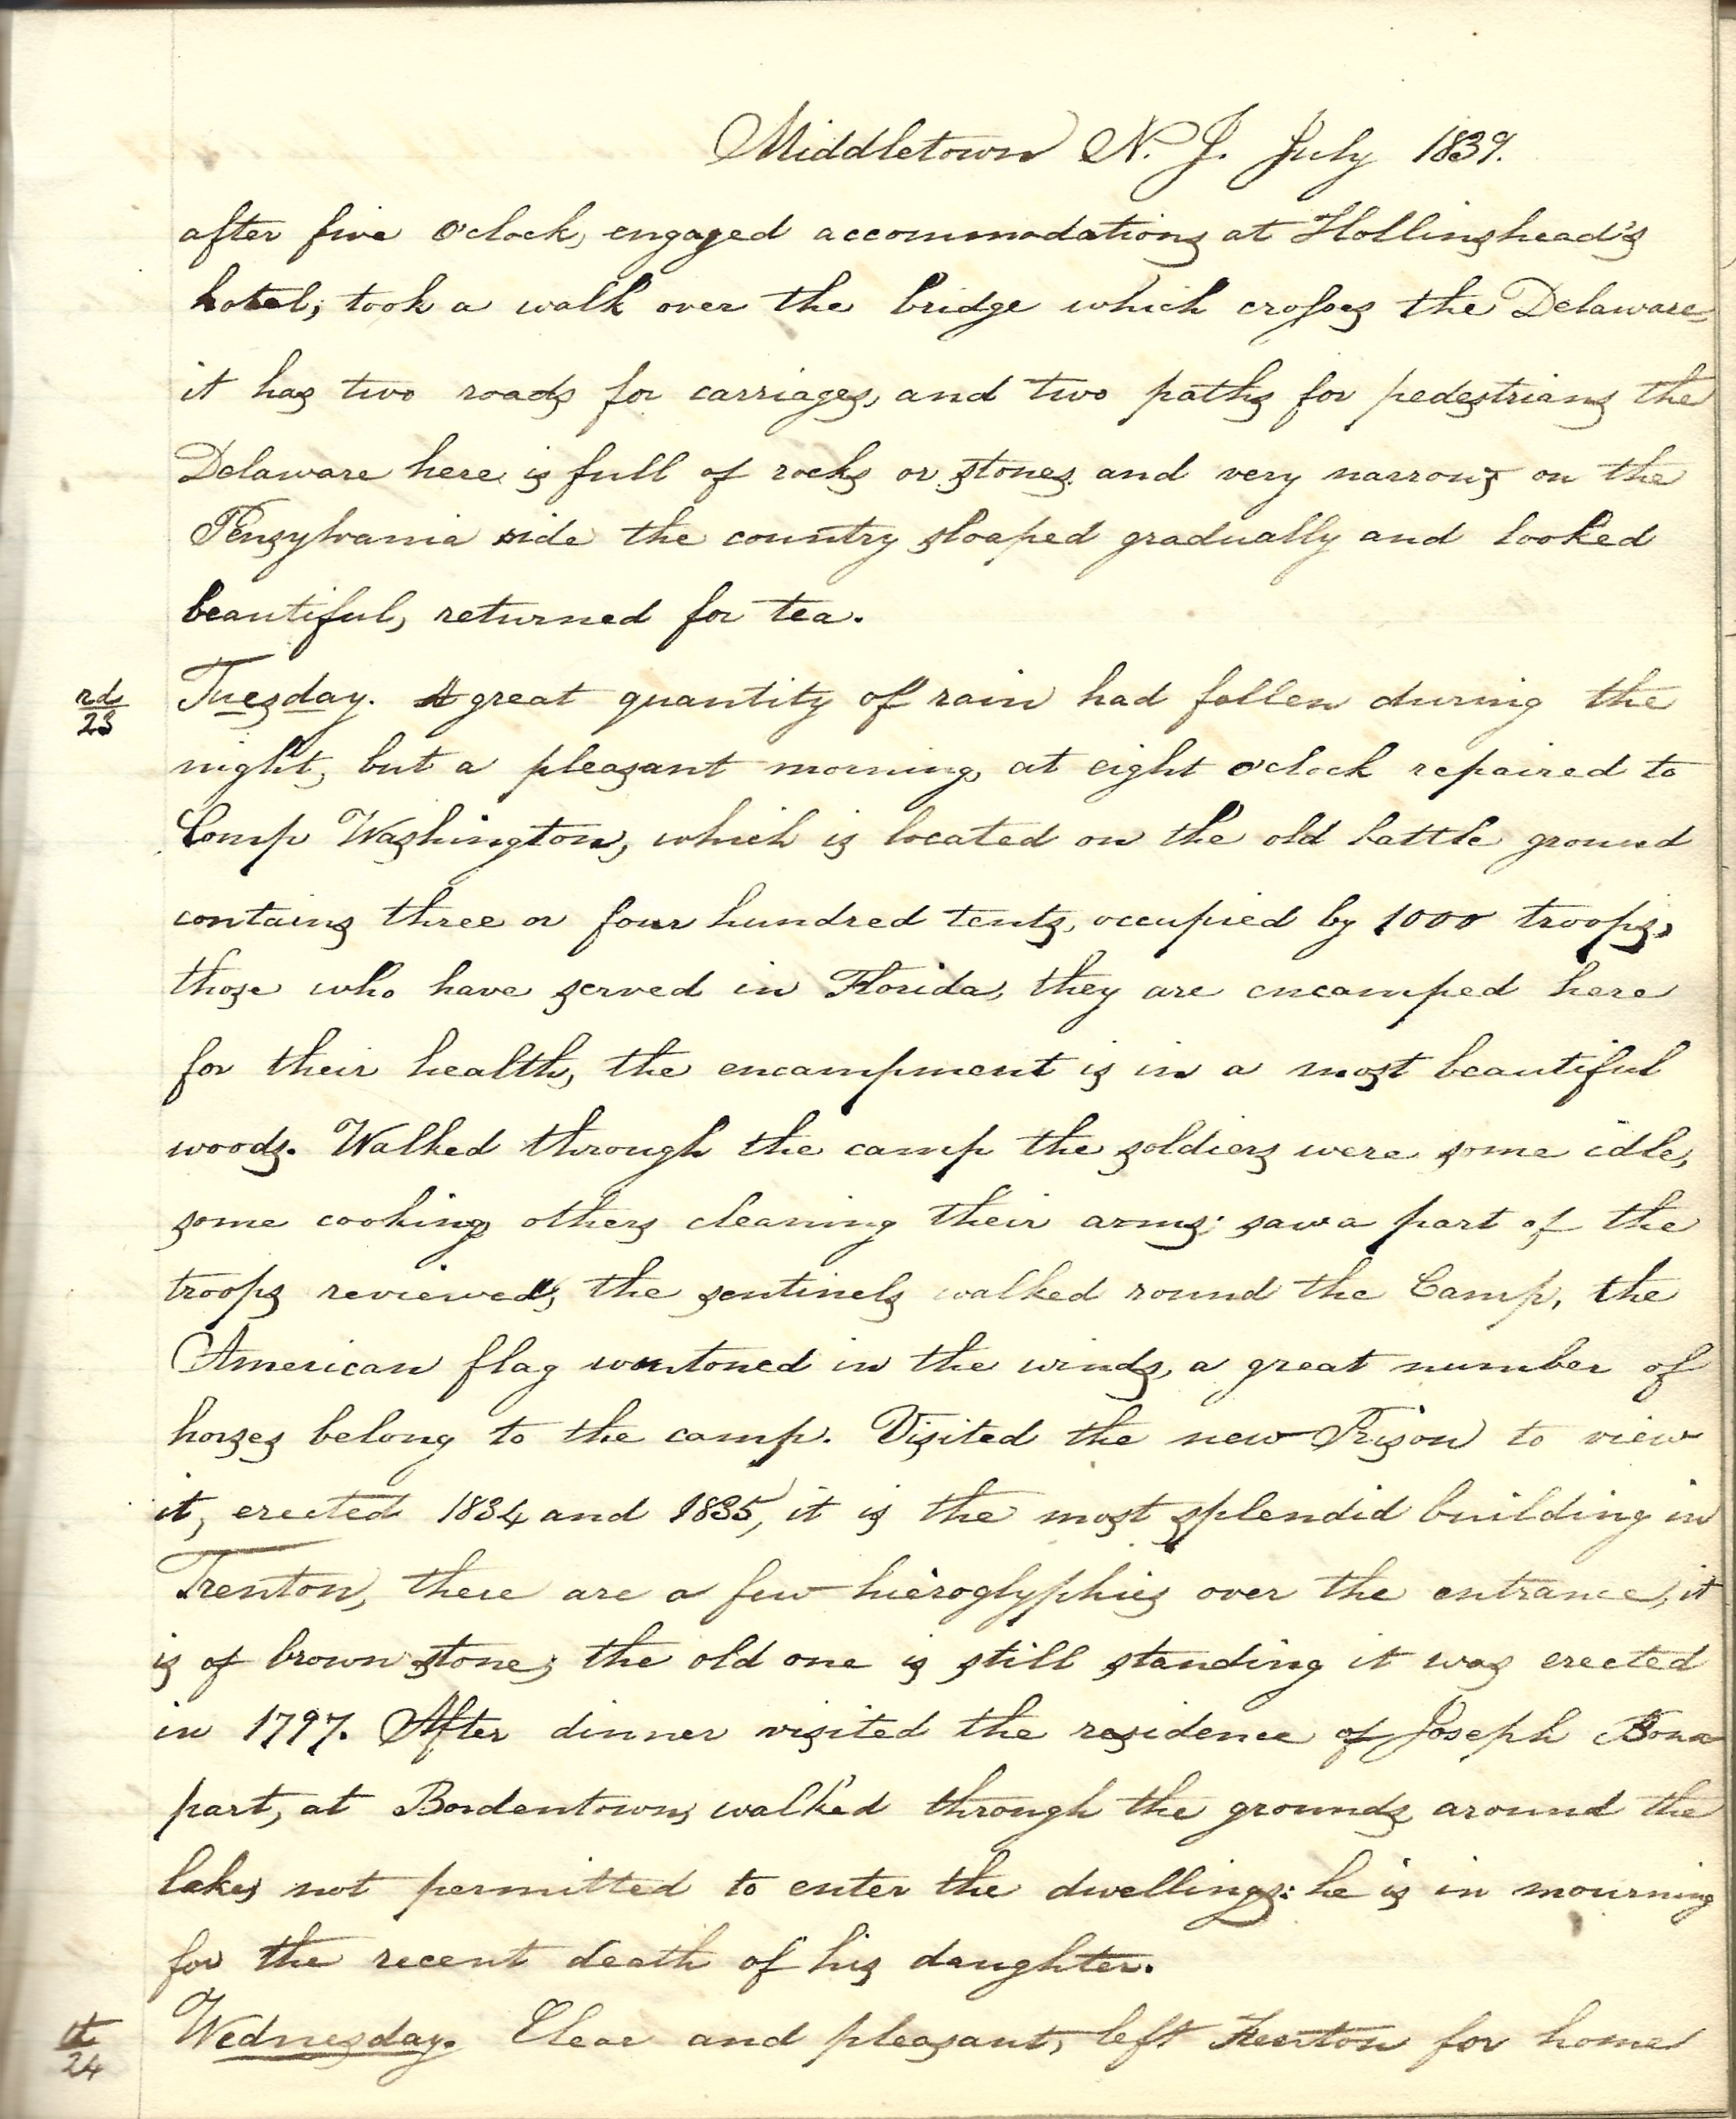 Middletown N. J. July 1839.
after five o'clock, engaged accommodations at Hollinshead's
hotel; took a walk over the bridge which crosses the Delaware
it has two roads for carriages, and two paths for pedestrians the
Delaware here is full of rocks or stones and very narrow; on the
Pensylvania side the country sloaped gradually and looked
beautiful, returned for tea.
rd
23
Tuesday. A great quantity of rain had fallen during the
night, but a pleasant morning, at eight o'clock repaired to
Camp Washington, which is located on the old battle ground
contains three or four hundred tents, occupied by 1000 troops,
those who have served in Florida, they are encamped here
for their health, the encampment is in a most beautiful
woods. Walked through the camp the soldiers were some idle,
some cooking others cleaning their arms; saw a part of the
troops reviewed, the sentinels walked round the Camp, the
American flag wantoned in the winds, a great number of
horses belong to the camp. Visited the new Prison to view
it, erected 1834 and 1835, it is the most splendid building in
Trenton, there are a few hieroglyphics over the entrance, it
is of brown stone; the old one is still standing it was erected
in 1797. After dinner visited the residence of Joseph Bona
part, at Bordentown, walked through the grounds, around the
lakes not permitted to enter the dwellings: he is in mourning
for the recent death of his daughter.
th
24
Wednesday. Clear and pleasant, left Trenton for home